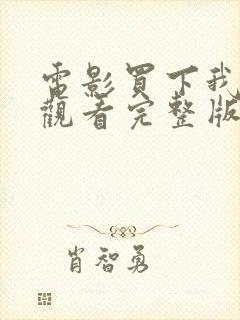 電影買下我
觀看完整版
肖智勇